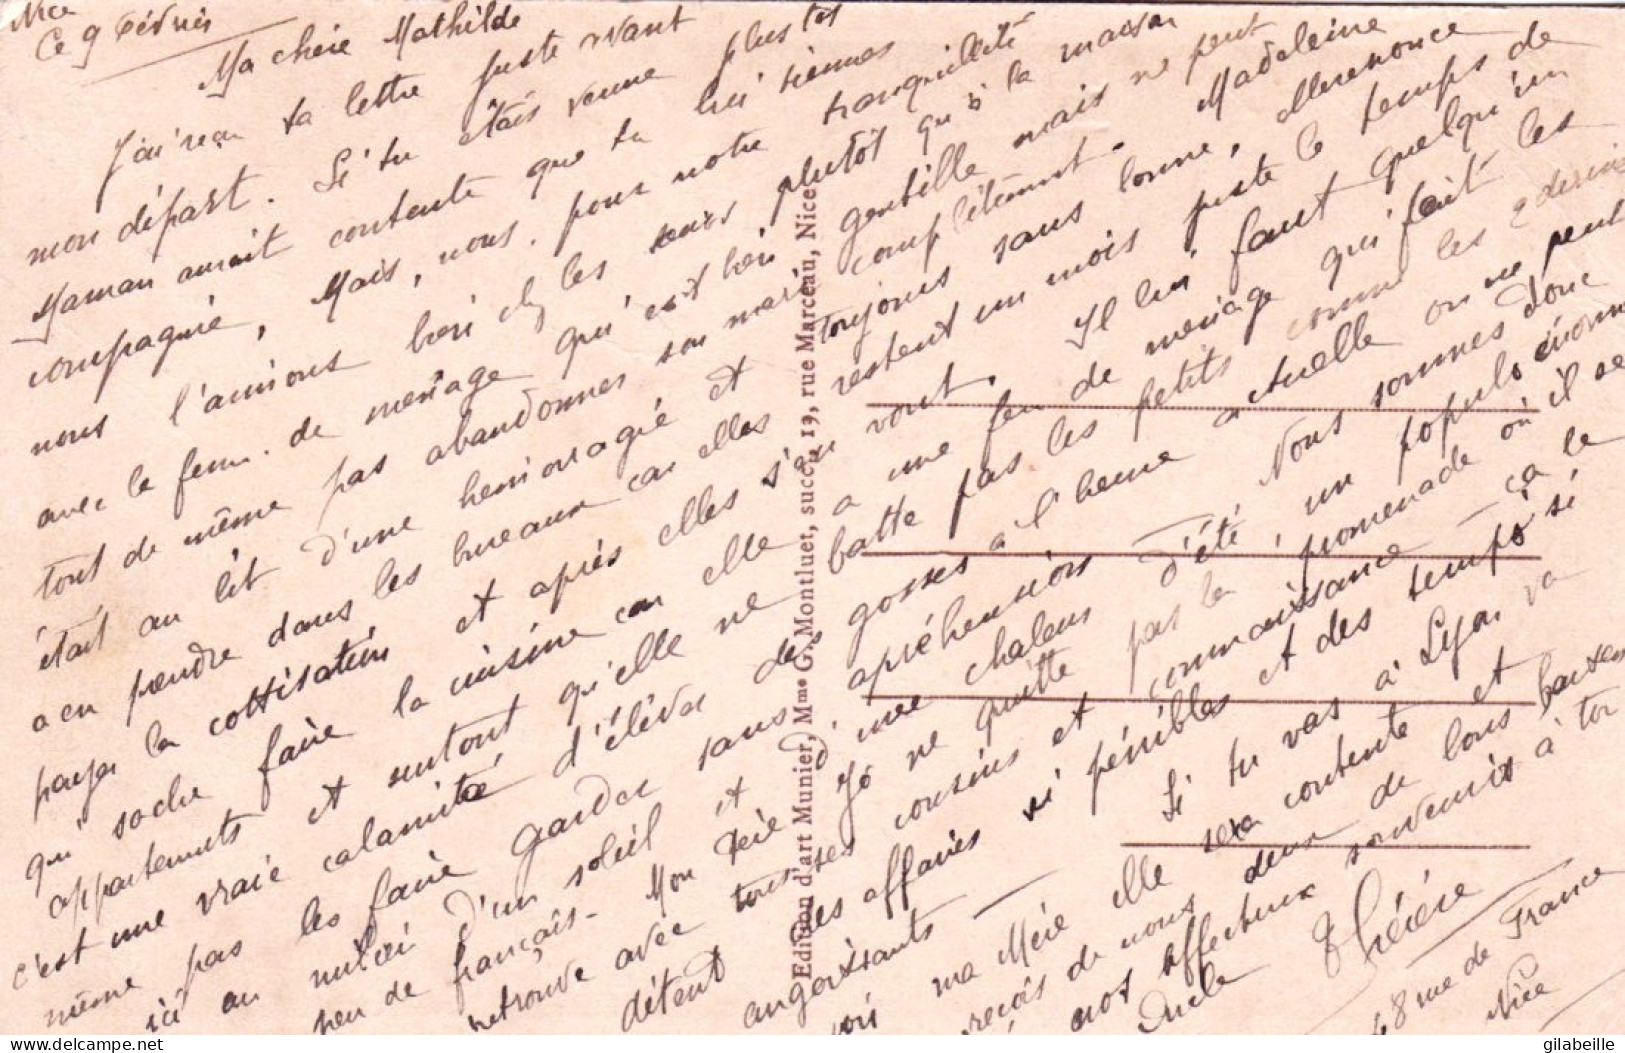 Nice
Ce 9 Février
Ma chère Mathilde
J'ai reçu ta lettre juste avant
mon départ. Si tu étais venue plus tôt
Maman aurait contente que tu lui tiennes
compagnie, Mais, nous. pour notre tranquillité
nous l'aimions bien chez les soeurs plutôt qu'à la maison
avec la fem. de ménage qu'est bien gentille mais ne peut
tout de même pas abandonner son mari complètement. Madeleine
était au lit d'une hémorragie et toujours sans bonne, elle renonce
a en prendre dans les bureaux car elles restent un mois juste le temps de
payer la cottisation et après elles s'en vont. Il lui faut quelqu'un
qui sache faire la cuisine car elle a une fem de ménage qui fait les
appartements et surtout qu'elle ne batte pas les petits comme les 2 dernières
c'est une vraie calamité d'élever des gosses à l'heure actuelle on ne peut
même pas les faire garder sans appréhensions Nous sommes donc
ici au milieu d'un soleil et d'une chaleur d'été, un populo énorme
peu de français - Mon Père Jo ne quitte pas la promenade où il se
retrouve avec tous ses cousins et connaissances - ça le
détend des affaires si pénibles et des temps si
angoissants — Si tu vas à Lyon va
voir ma Mère elle sera contente et
reçois de nous deux de bons baisers
nos affectueux souvenirs à ton
Oncle Thérèse
48 rue de France
Nice
Edition d'art Munier, Mme G. Montluet, succr, 19, rue Marceau, Nice
delcampe.net
gilabeille